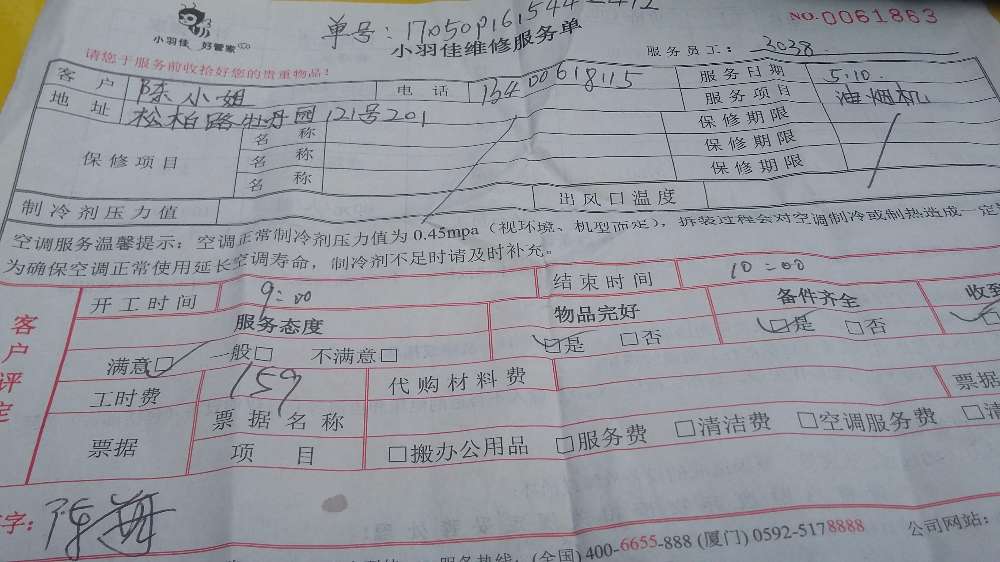 小羽佳 好管家
单号：
小羽佳维修服务单
NO.0061863
请您于服务前收拾好您的贵重物品！
服务员工：3038
客户 陈小姐 电话 13400618115 服务日期 5.10
地址 松柏路牡丹园121号201 服务项目 油烟机
保修项目 名称 保修期限
名称 保修期限
名称 保修期限
制冷剂压力值 出风口温度
空调服务温馨提示：空调正常制冷剂压力值为0.45mpa（视环境、机型而定），拆装过程会对空调制冷或制热造成一定
为确保空调正常使用延长空调寿命，制冷剂不足时请及时补充。
客户评定
开工时间 9:00 结束时间 10:00
服务态度 物品完好 备件齐全 收到
满意☑ 一般□ 不满意□ ☑是 □否 ☑是 □否
工时费 159 代购材料费 票据
票据 票据名称
项目 □搬办公用品 □服务费 □清洁费 □空调服务费 □清
字：陈
服务热线：(全国)400-6655-888 (厦门)0592-5178888 公司网站：